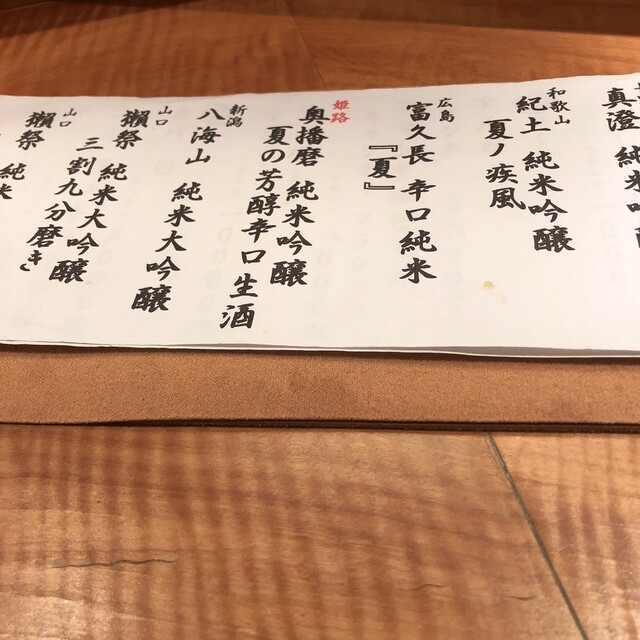 真澄 純米吟
和歌山
紀土 純米吟醸
夏ノ疾風
広島
富久長 辛口純米
『一夏』
姫路
奥播磨 純米吟醸
夏の芳醇辛口生酒
新潟
八海山 純米大吟醸
山口
獺祭 純米大吟醸
三割九分磨き
山口
獺祭 純米